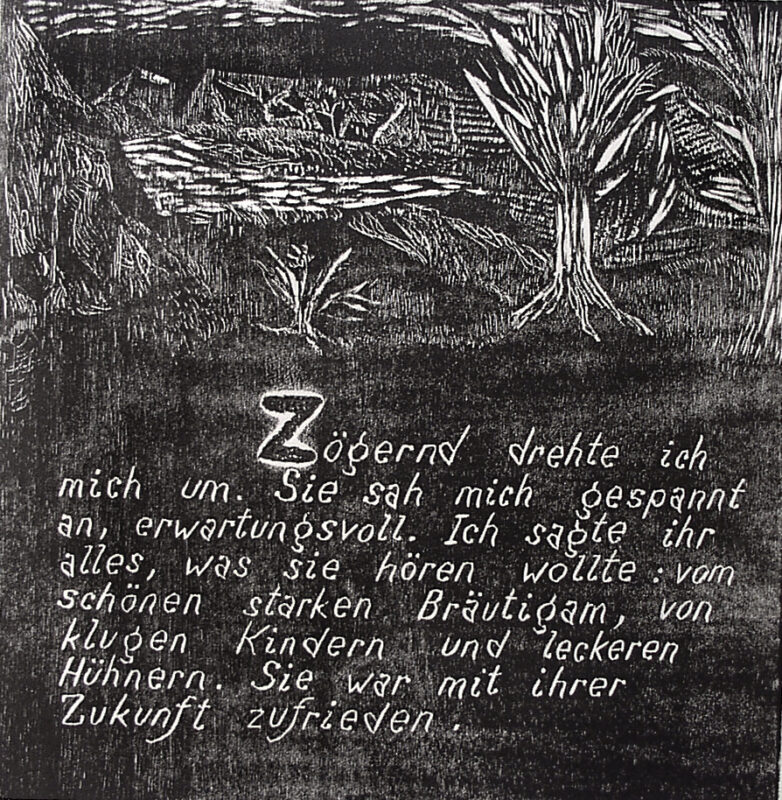 Zögernd drehte ich
mich um. Sie sah mich gespannt
an, erwartungsvoll. Ich sagte ihr
alles, was sie hören wollte: vom
schönen starken Bräutigam, von
klugen Kindern und leckeren
Hühnern. Sie war mit ihrer
Zukunft zufrieden.